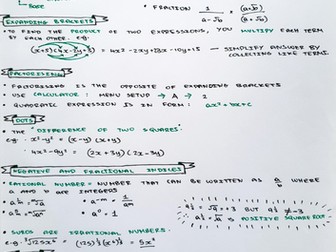 BASE
• FRACTION
EXPANDING BRACKETS
• TO FIND THE PRODUCT OF TWO EXPRESSIONS, YOU MULTIPLY EACH TERM
BY EACH OTHER. e.g.
(x+5)(4x-2y+3) = 4x² - 2xy + 23x - 10y + 15 — SIMPLIFY ANSWER BY
COLLECTING LIKE TERMS.
FACTORISING
• FACTORISING IS THE OPPOSITE OF EXPANDING BRACKETS
• USE CALCULATOR: MENU SETUP → A → 2
• QUADRATIC EXPRESSION IS IN FORM: ax²+bx+c
DOTS
• THE "DIFFERENCE OF TWO SQUARES"
e.g. x²-y² = (x-y)(x+y)
4x²-9y² = (2x+3y)(2x-3y)
NEGATIVE AND FRACTIONAL INDICES
• RATIONAL NUMBER = NUMBER THAT CAN BE WRITTEN AS a/b WHERE
a AND b ARE INTEGERS
• a⁰ = 1
9½ = √9 = +3 BUT 9½ ≠ -3
IS POSITIVE SQUARE ROOT
• SURDS ARE IRRATIONAL NUMBERS.